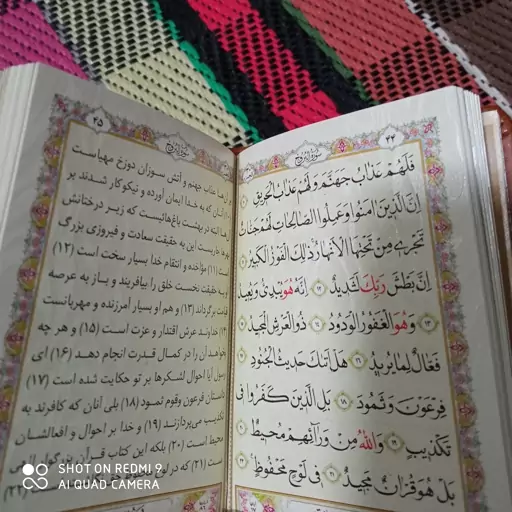 ۴۴
سورة البروج
فَلَهُمْ عَذَابُ جَهَنَّمَ وَلَهُمْ عَذَابُ الْحَرِيقِ
اِنَّ الَّذِينَ امَنُوا وَعَمِلُوا الصَّالِحَاتِ لَهُمْ جَنَّاتٌ
تَجْرِي مِنْ تَحْتِهَا الْاَنْهَارُ ذٰلِكَ الْفَوْزُ الْكَبِيرُ
اِنَّ بَطْشَ رَبِّكَ لَشَدِيدٌ ۱۲ اِنَّهُ هُوَ يُبْدِئُ وَيُعِيدُ
۱۳ وَهُوَ الْغَفُورُ الْوَدُودُ ۱۴ ذُو الْعَرْشِ الْمَجِيدُ
فَعَّالٌ لِمَا يُرِيدُ ۱۶ هَلْ اَتٰىكَ حَدِيثُ الْجُنُودِ
فِرْعَوْنَ وَثَمُودَ ۱۸ بَلِ الَّذِينَ كَفَرُوا فِي
تَكْذِيبٍ ۱۹ وَاللّٰهُ مِنْ وَرَائِهِمْ مُحِيطٌ ۲۰
بَلْ هُوَ قُرْاٰنٌ مَجِيدٌ ۲۱ فِي لَوْحٍ مَحْفُوظٍ ۲۲
۴۵
سورة البروج
آن‌ها عذاب جهنم و آتش سوزان دوزخ مهیاست
(۱۰) آنان که به خدا ایمان آورده و نیکوکار شدند بر
آن‌ها البته در بهشت باغ‌هائیست که زیر درختانش
نهرها جاریست این به حقیقت سعادت و فیروزی بزرگ
است (۱۱) مؤاخذه و انتقام خدا بسیار سخت است (۱۲)
به حقیقت نخست خلق را بیافریند و باز به عرصه
قیامت برگرداند (۱۳) و هم او بسیار آمرزنده و مهربانست
(۱۴) خداوند عرش اقتدار و عزت است (۱۵) و هر چه
بخواهد آن را در کمال قدرت انجام دهد (۱۶) ای
رسول آیا احوال لشکرها بر تو حکایت شده است (۱۷)
داستان فرعون وقوم ثمود (۱۸) بلی آنان که کافرند به
تکذیب می‌پردازند (۱۹) و خدا بر احوال و افعالشان
محیط است (۲۰) بلکه این کتاب قرآن بزرگوار الهی
است (۲۱) که در
SHOT ON REDMI 9
AI QUAD CAMERA